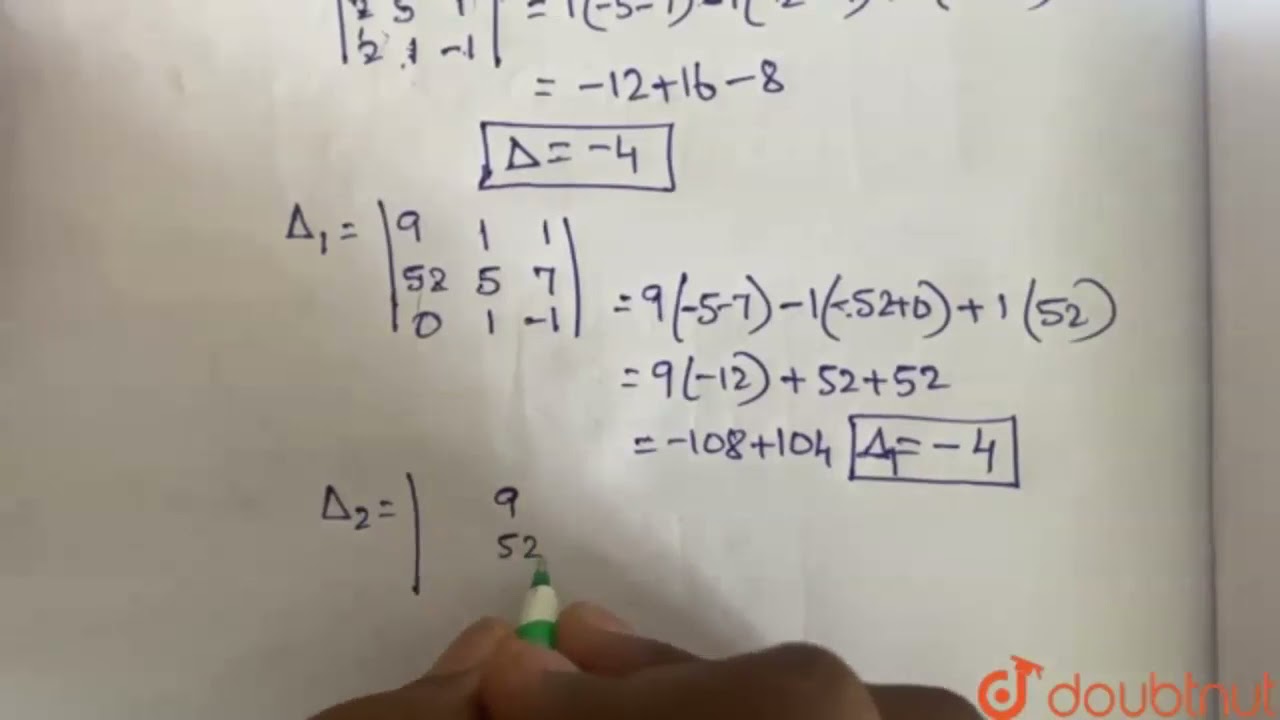 2 5 7 = 1(-5-7)-1(
2 1 -1
= -12+16-8
Δ = -4
Δ₁ = 9 1 1
52 5 7
0 1 -1 = 9(-5-7)-1(-52+0)+1(52)
= 9(-12)+52+52
= -108+104 Δ₁= -4
Δ₂ = | 9
52
doubtnut